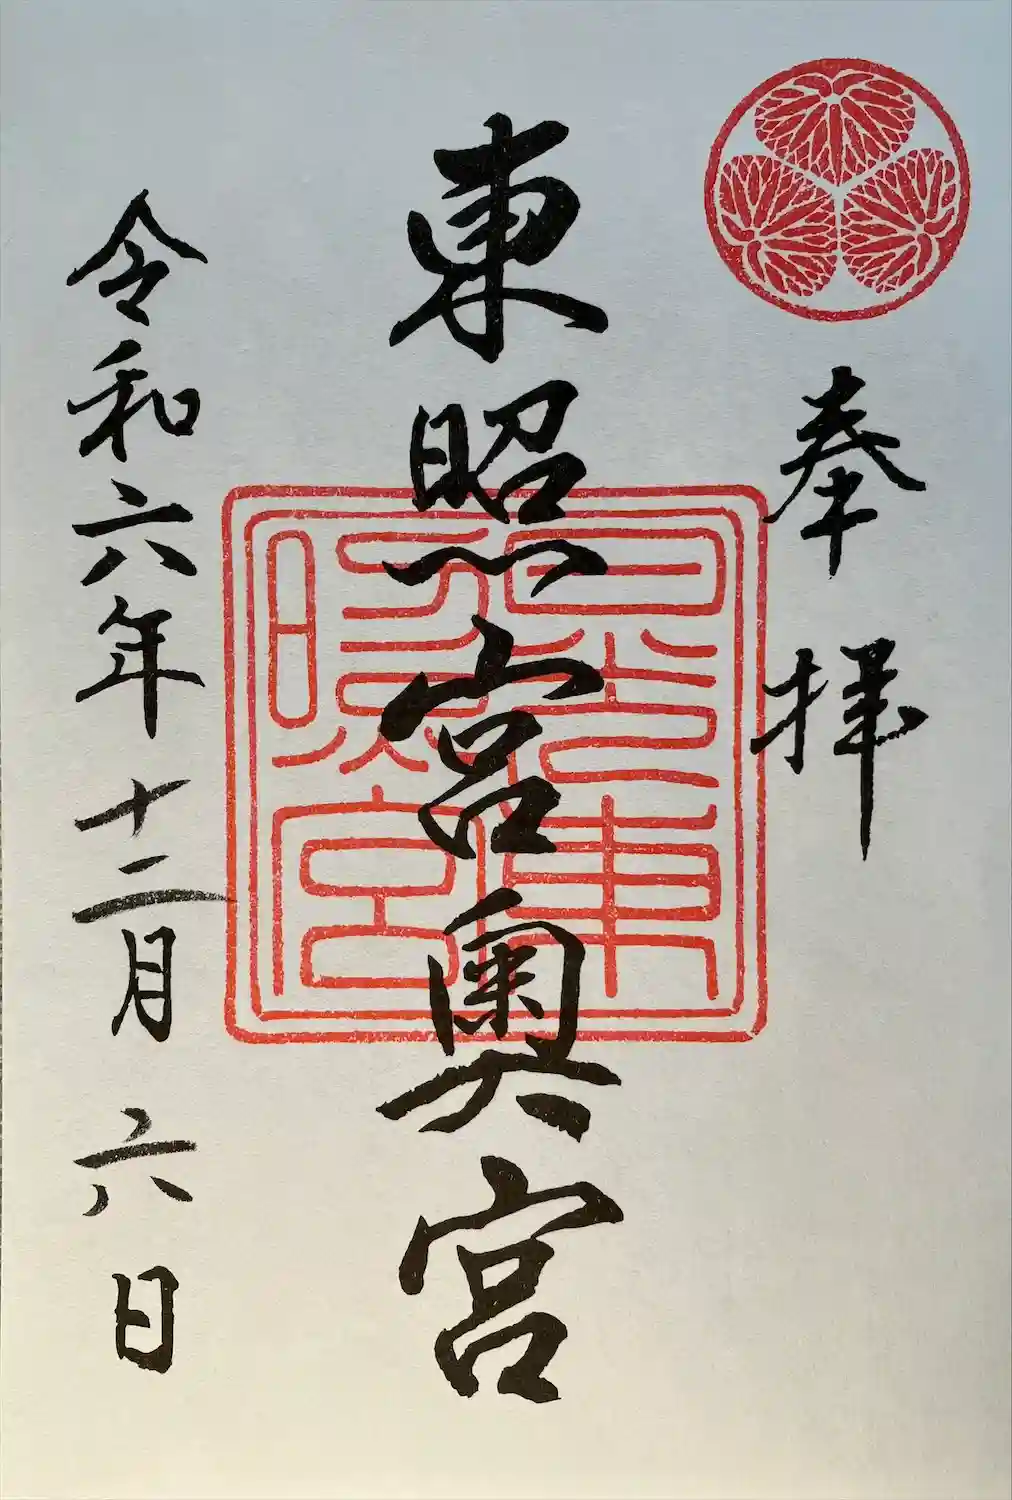 奉拝
東照宮奥宮
日光東照宮
令和六年十二月六日